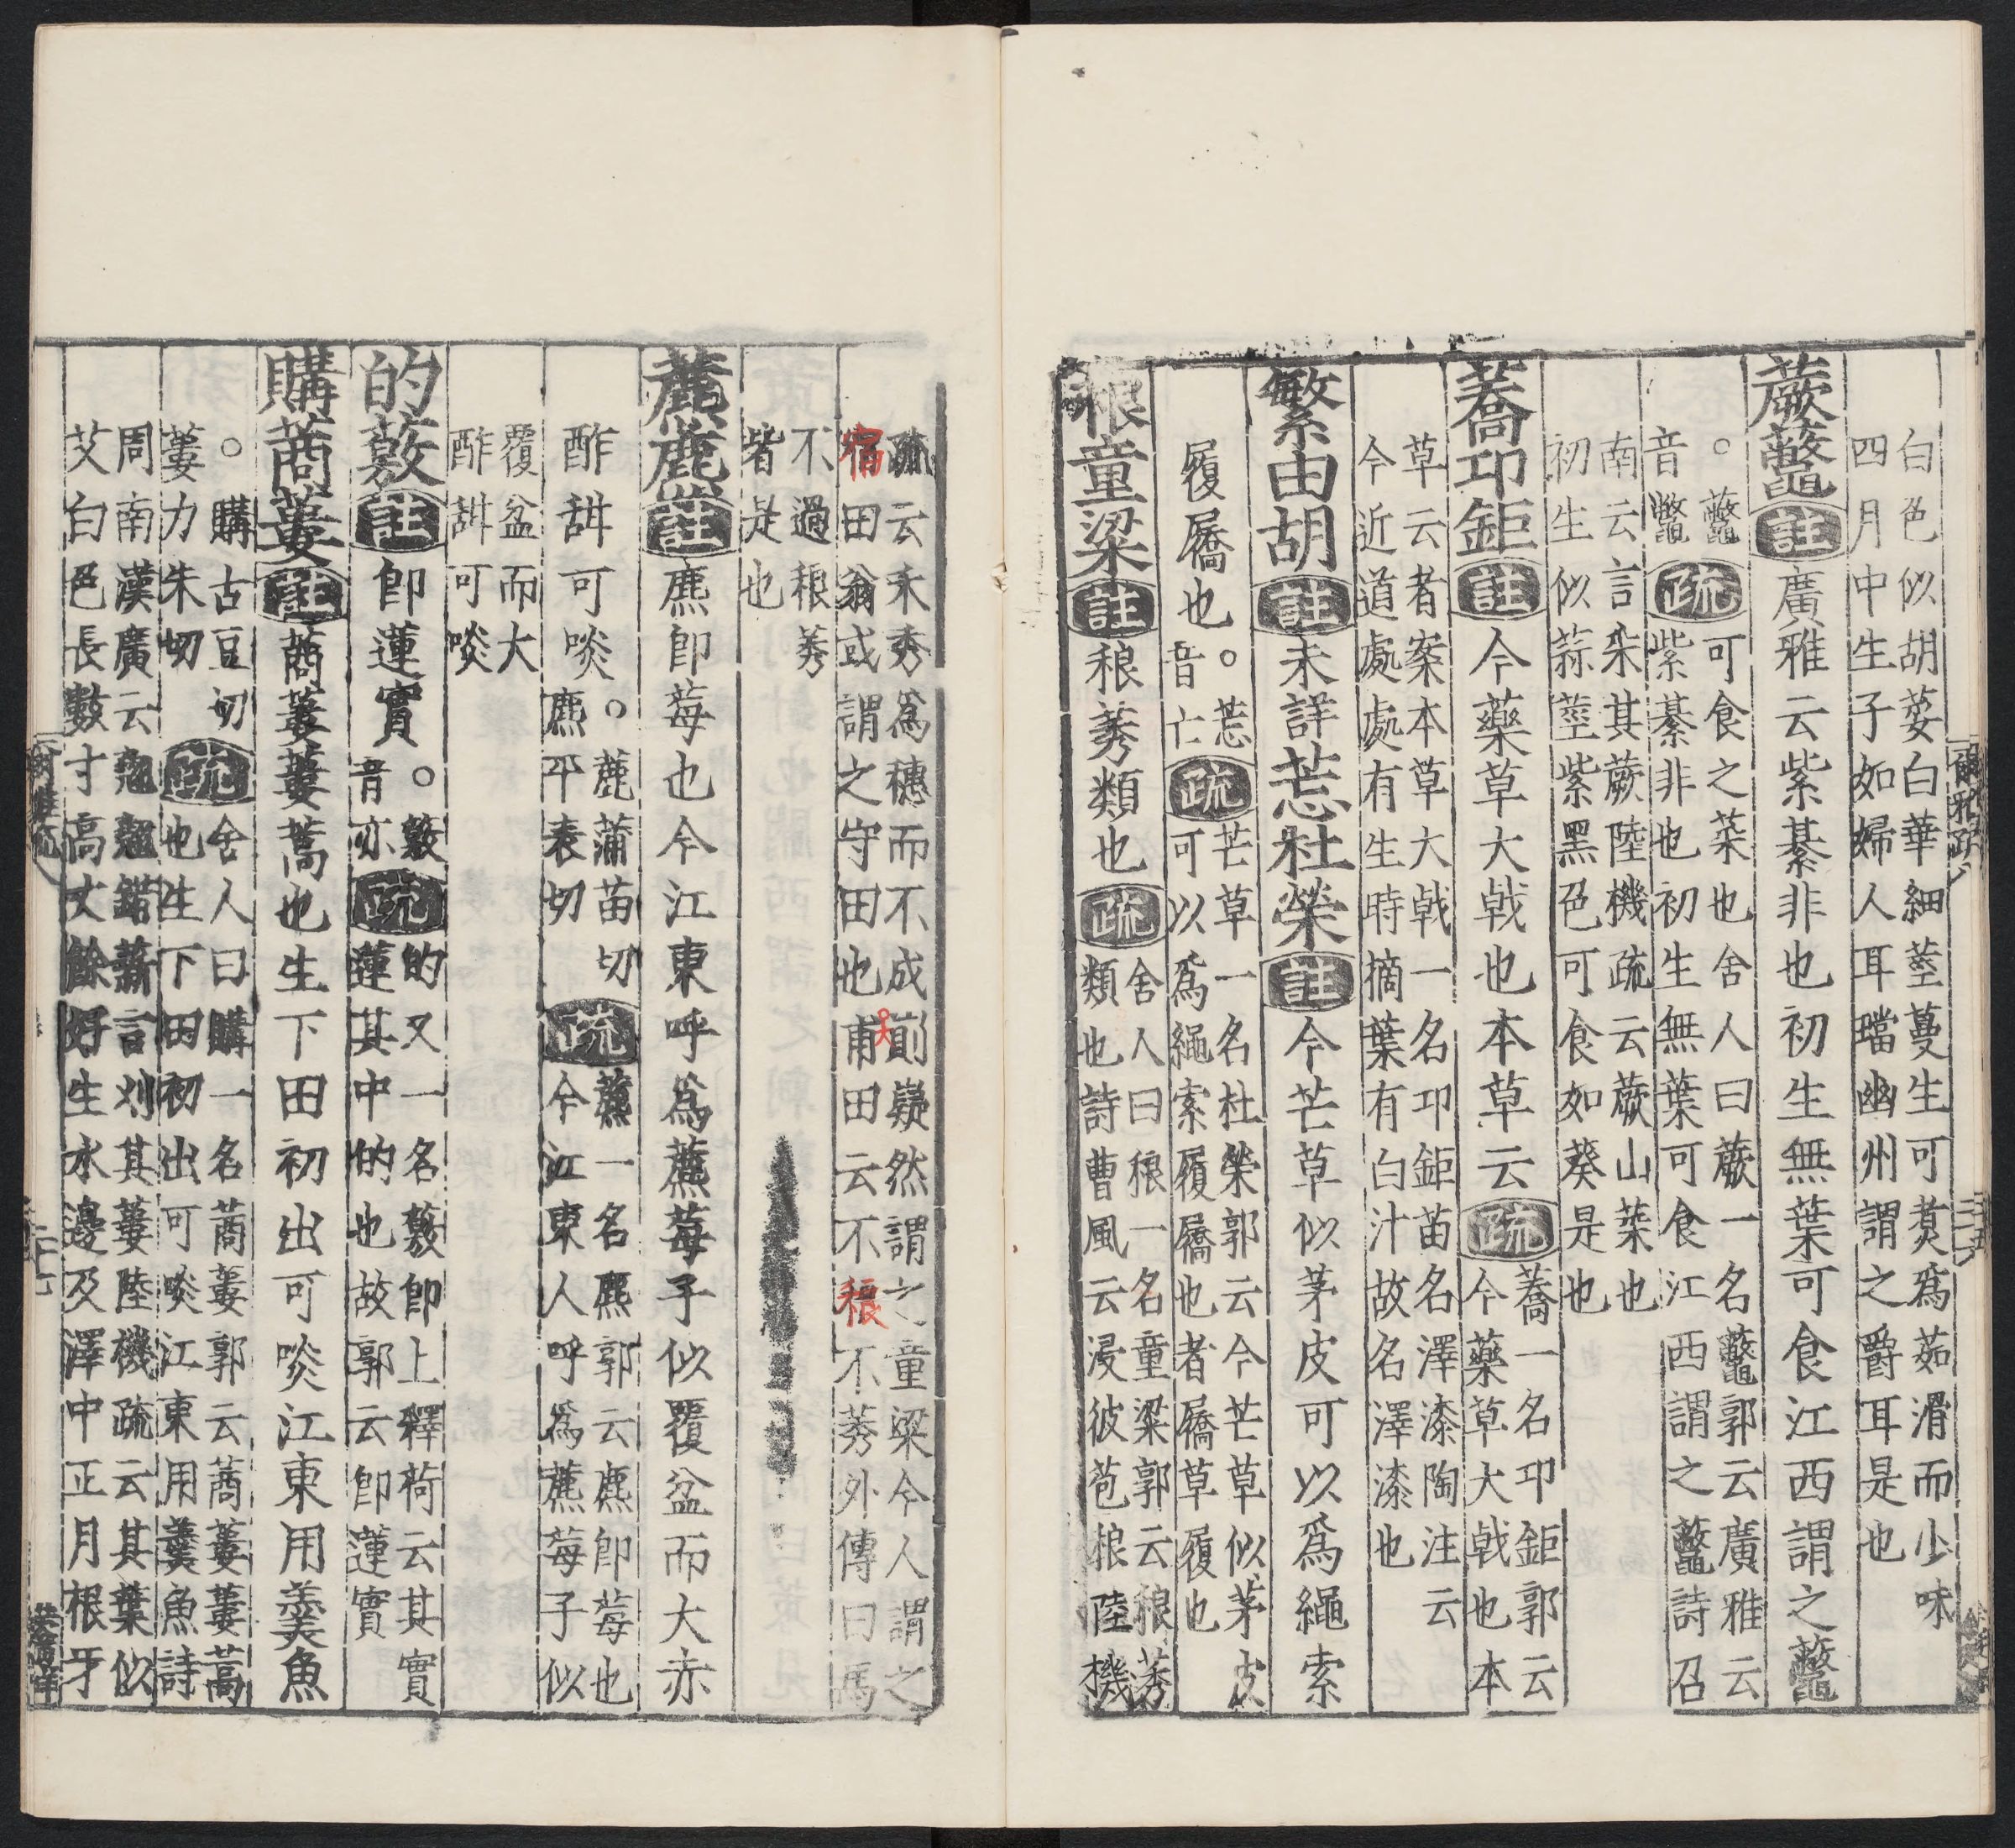 白色似胡荽白華細莖蔓生可煑爲茹滑而少味
四月中生子如婦人耳璫幽州謂之爵耳是也
蕨虌註廣雅云紫綦非也初生無葉可食江西謂之虌
。虌音鷩疏可食之菜也舍人曰蕨一名虌郭云廣雅云
紫綦非也初生無葉可食江西謂之虌詩召
南云言采其蕨陸機疏云蕨山菜也
初生似蒜莖紫黑色可食如葵是也
蕎邛鉅註今藥草大戟也本草云疏蕎一名邛鉅郭云
今藥草大戟也本
草云者案本草大戟一名邛鉅苗名澤漆陶注云
今近道處處有生時摘葉有白汁故名澤漆也
繁由胡註未詳莣杜榮註今芒草似茅皮可以爲繩索
履屩也。莣音亡疏芒草一名杜榮郭云今芒草似茅皮
可以爲繩索履屩也者屩草履也
稂童粱註稂莠類也疏舍人曰稂一名童粱郭云稂莠
類也詩曹風云浸彼苞稂陸機
疏云禾秀爲穗而不成崱嶷然謂之童粱今人謂之
宿田翁或謂之守田也甫田云不稂不莠外傳曰馬
大
不過稂莠
皆是也
藨麃註麃即莓也今江東呼爲藨莓子似覆盆而大赤
酢甜可啖。藨蒲苗切麃平表切疏藨一名麃郭云麃即莓也
今江東人呼爲藨莓子似
覆盆而大
酢甜可啖
的薂註即蓮實。薂音亦疏的又一名薂即上釋荷云其實
蓮其中的也故郭云即蓮實
購蔏蔞註蔏蔞蔞蒿也生下田初出可啖江東用羹魚
。購古豆切蔞力朱切疏舍人曰購一名蔏蔞郭云蔏蔞蔞蒿
也生下田初出可啖江東用羹魚詩
周南漢廣云翹翹錯薪言刈其蔞陸機疏云其葉似
艾白色長數寸高丈餘好生水邊及澤中正月根牙
爾雅疏八